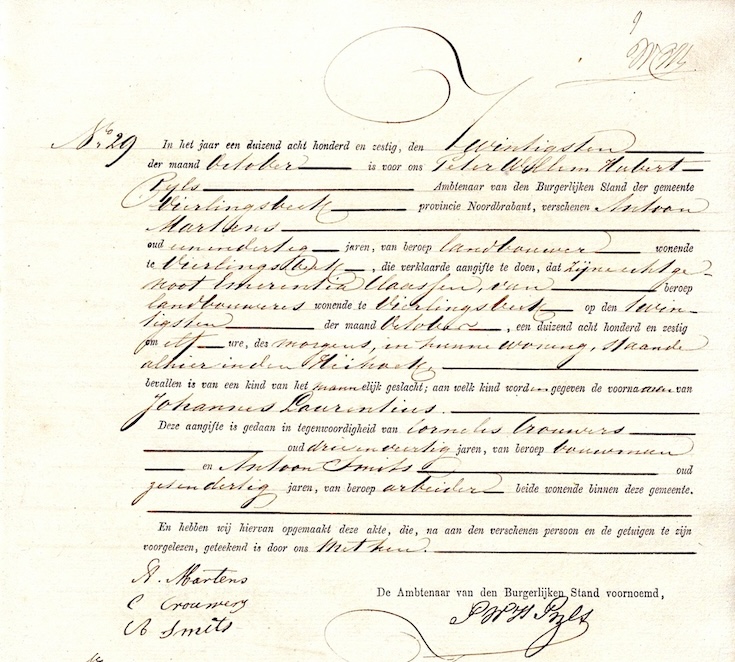 9
No 29
In het jaar een duizend acht honderd en zestig, den twintigsten
der maand October is voor ons Peter Willem Hubert
Pyls Ambtenaar van den Burgerlijken Stand der gemeente
Vierlingsbeek provincie Noordbrabant, verschenen Antoon
Martens
oud eenendertig jaren, van beroep landbouwer wonende
te Vierlingsbeek, die verklaarde aangifte te doen, dat zijne echtge-
noot Emerentia Claassen, van beroep
landbouweres wonende te Vierlingsbeek op den twin-
tigsten der maand October, een duizend acht honderd en zestig
om elf ure, des morgens, in hunne woning, staande
alhier in den
bevallen is van een kind van het mannelijk geslacht; aan welk kind worden gegeven de voornamen van
Johannes Laurentius.
Deze aangifte is gedaan in tegenwoordigheid van Cornelis Crouwers
oud drieenveertig jaren, van beroep bouwman
en Antoon Smits oud
zesendertig jaren, van beroep arbeider beide wonende binnen deze gemeente.
En hebben wij hiervan opgemaakt deze akte, die, na aan den verschenen persoon en de getuigen te zijn
voorgelezen, geteekend is door ons met hen.
A. Martens
C Crouwers
A Smits
De Ambtenaar van den Burgerlijken Stand voornoemd,
P W H Pyls